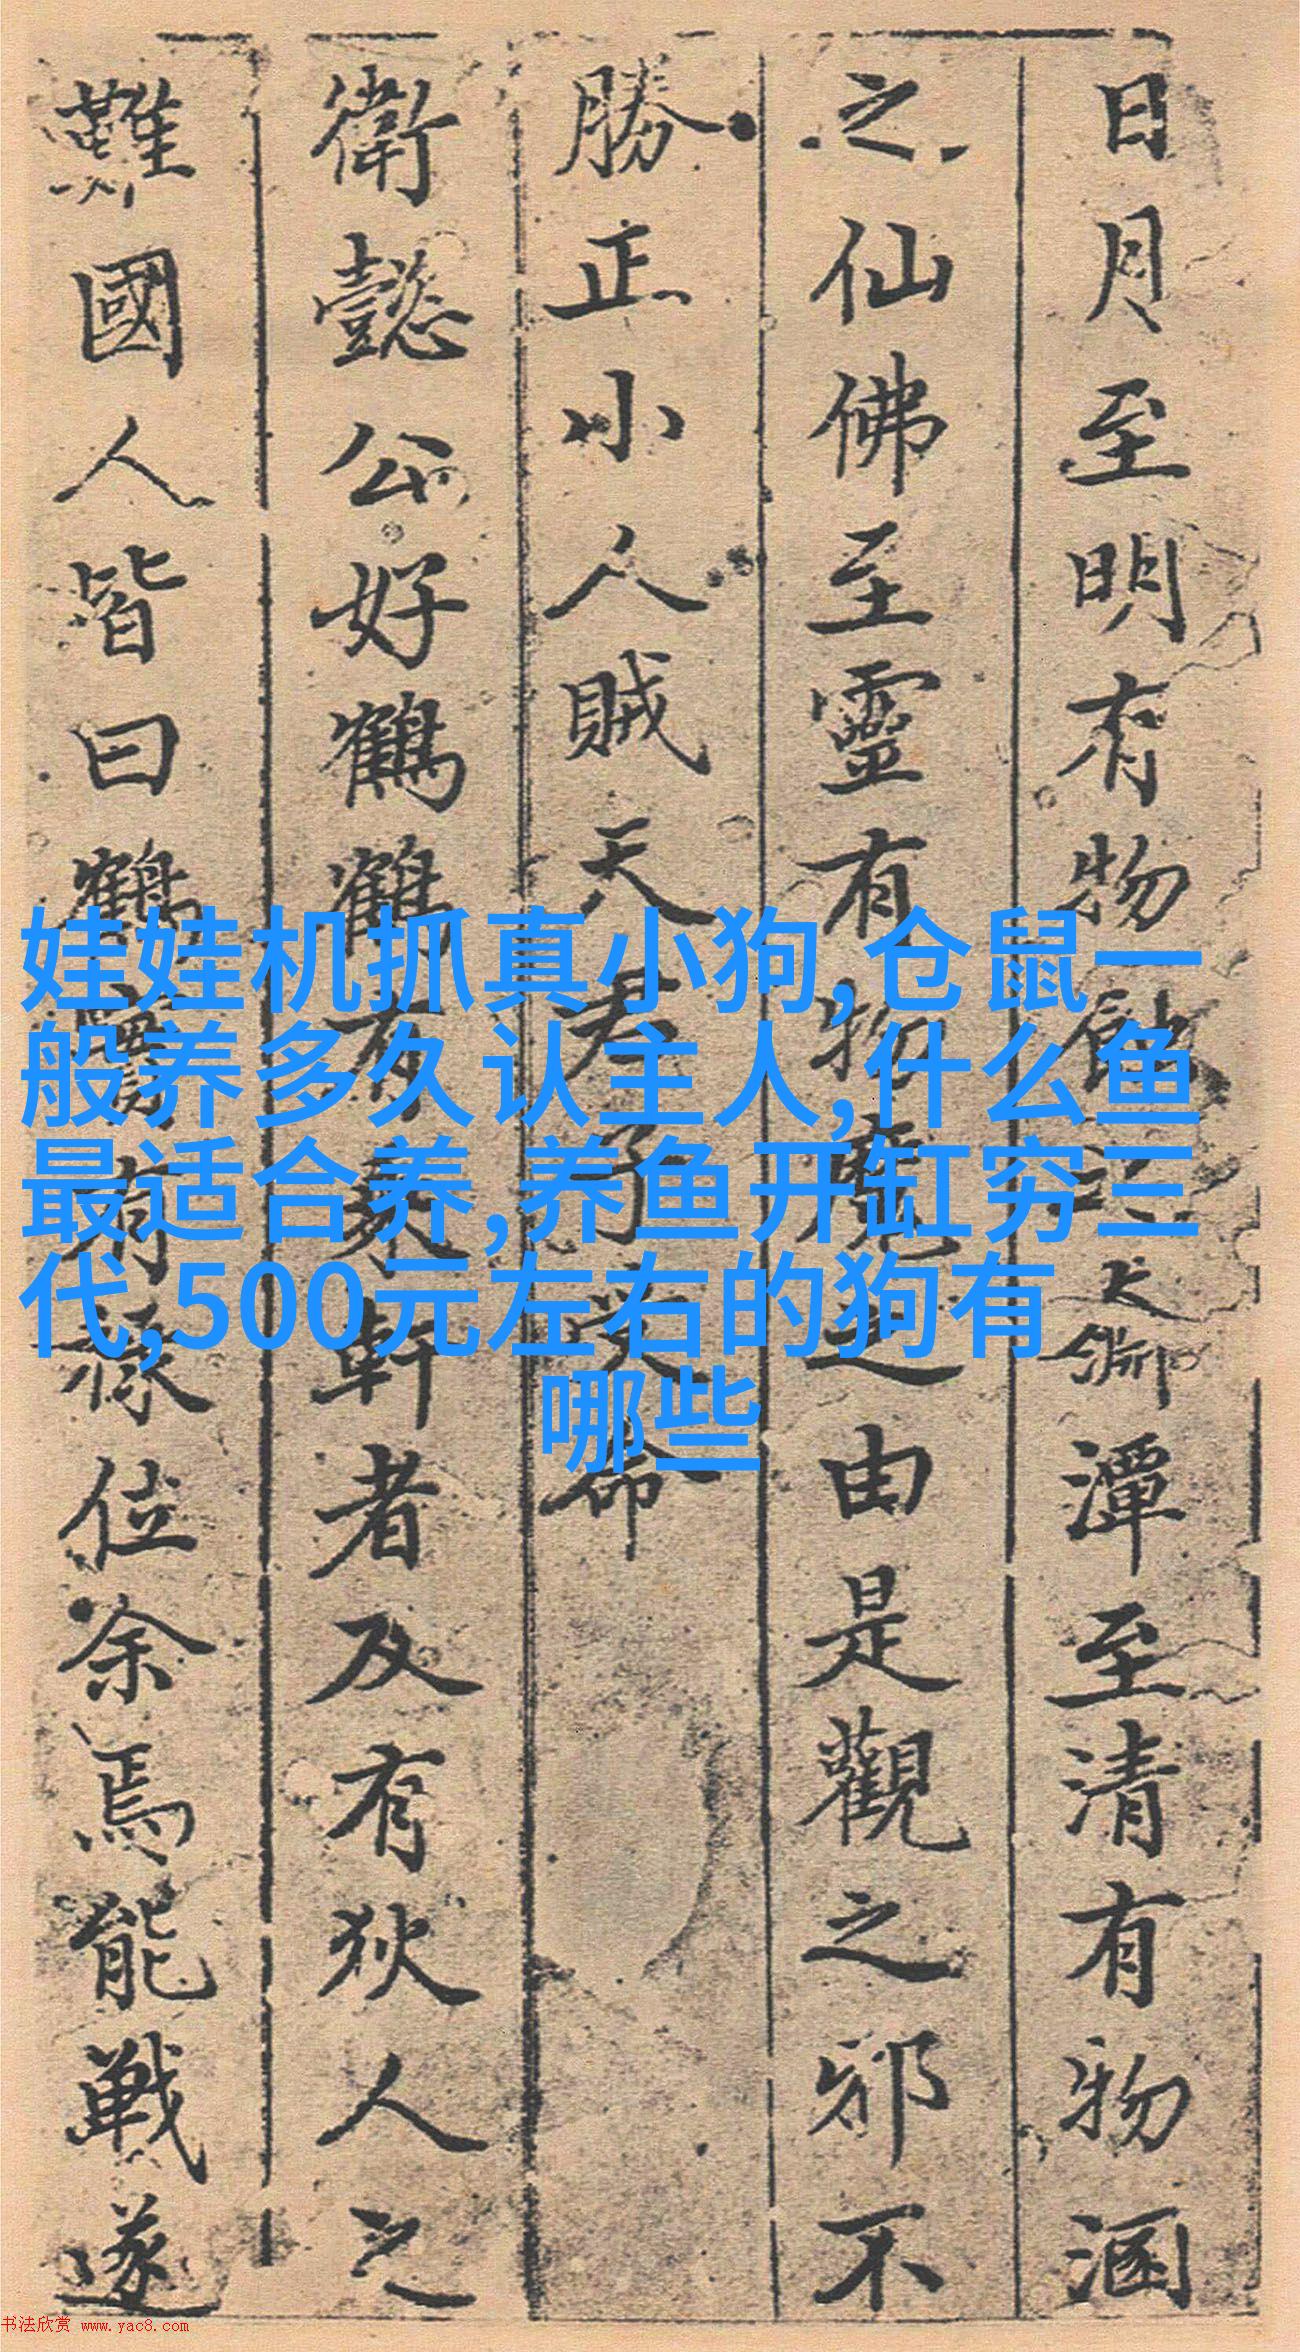 日月至明有物蝕之大淵潭至清有物涵
之仙佛至靈有物魔之由是觀之邪不
勝正小人賊天君子受命
衛懿公好鶴鶴有乘軒者及有狄人之
難國人皆曰鶴實有祿位余焉能戰遂
娃娃机抓真小狗,仓鼠一
般养多久认主人,什么鱼
最适合养,养鱼开缸穷三
代,500元左右的狗有
哪些
书法欣赏 www.yac8.com